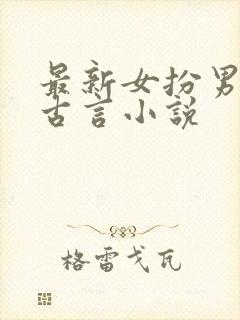 最新女扮男
古言小说
格雷戈瓦